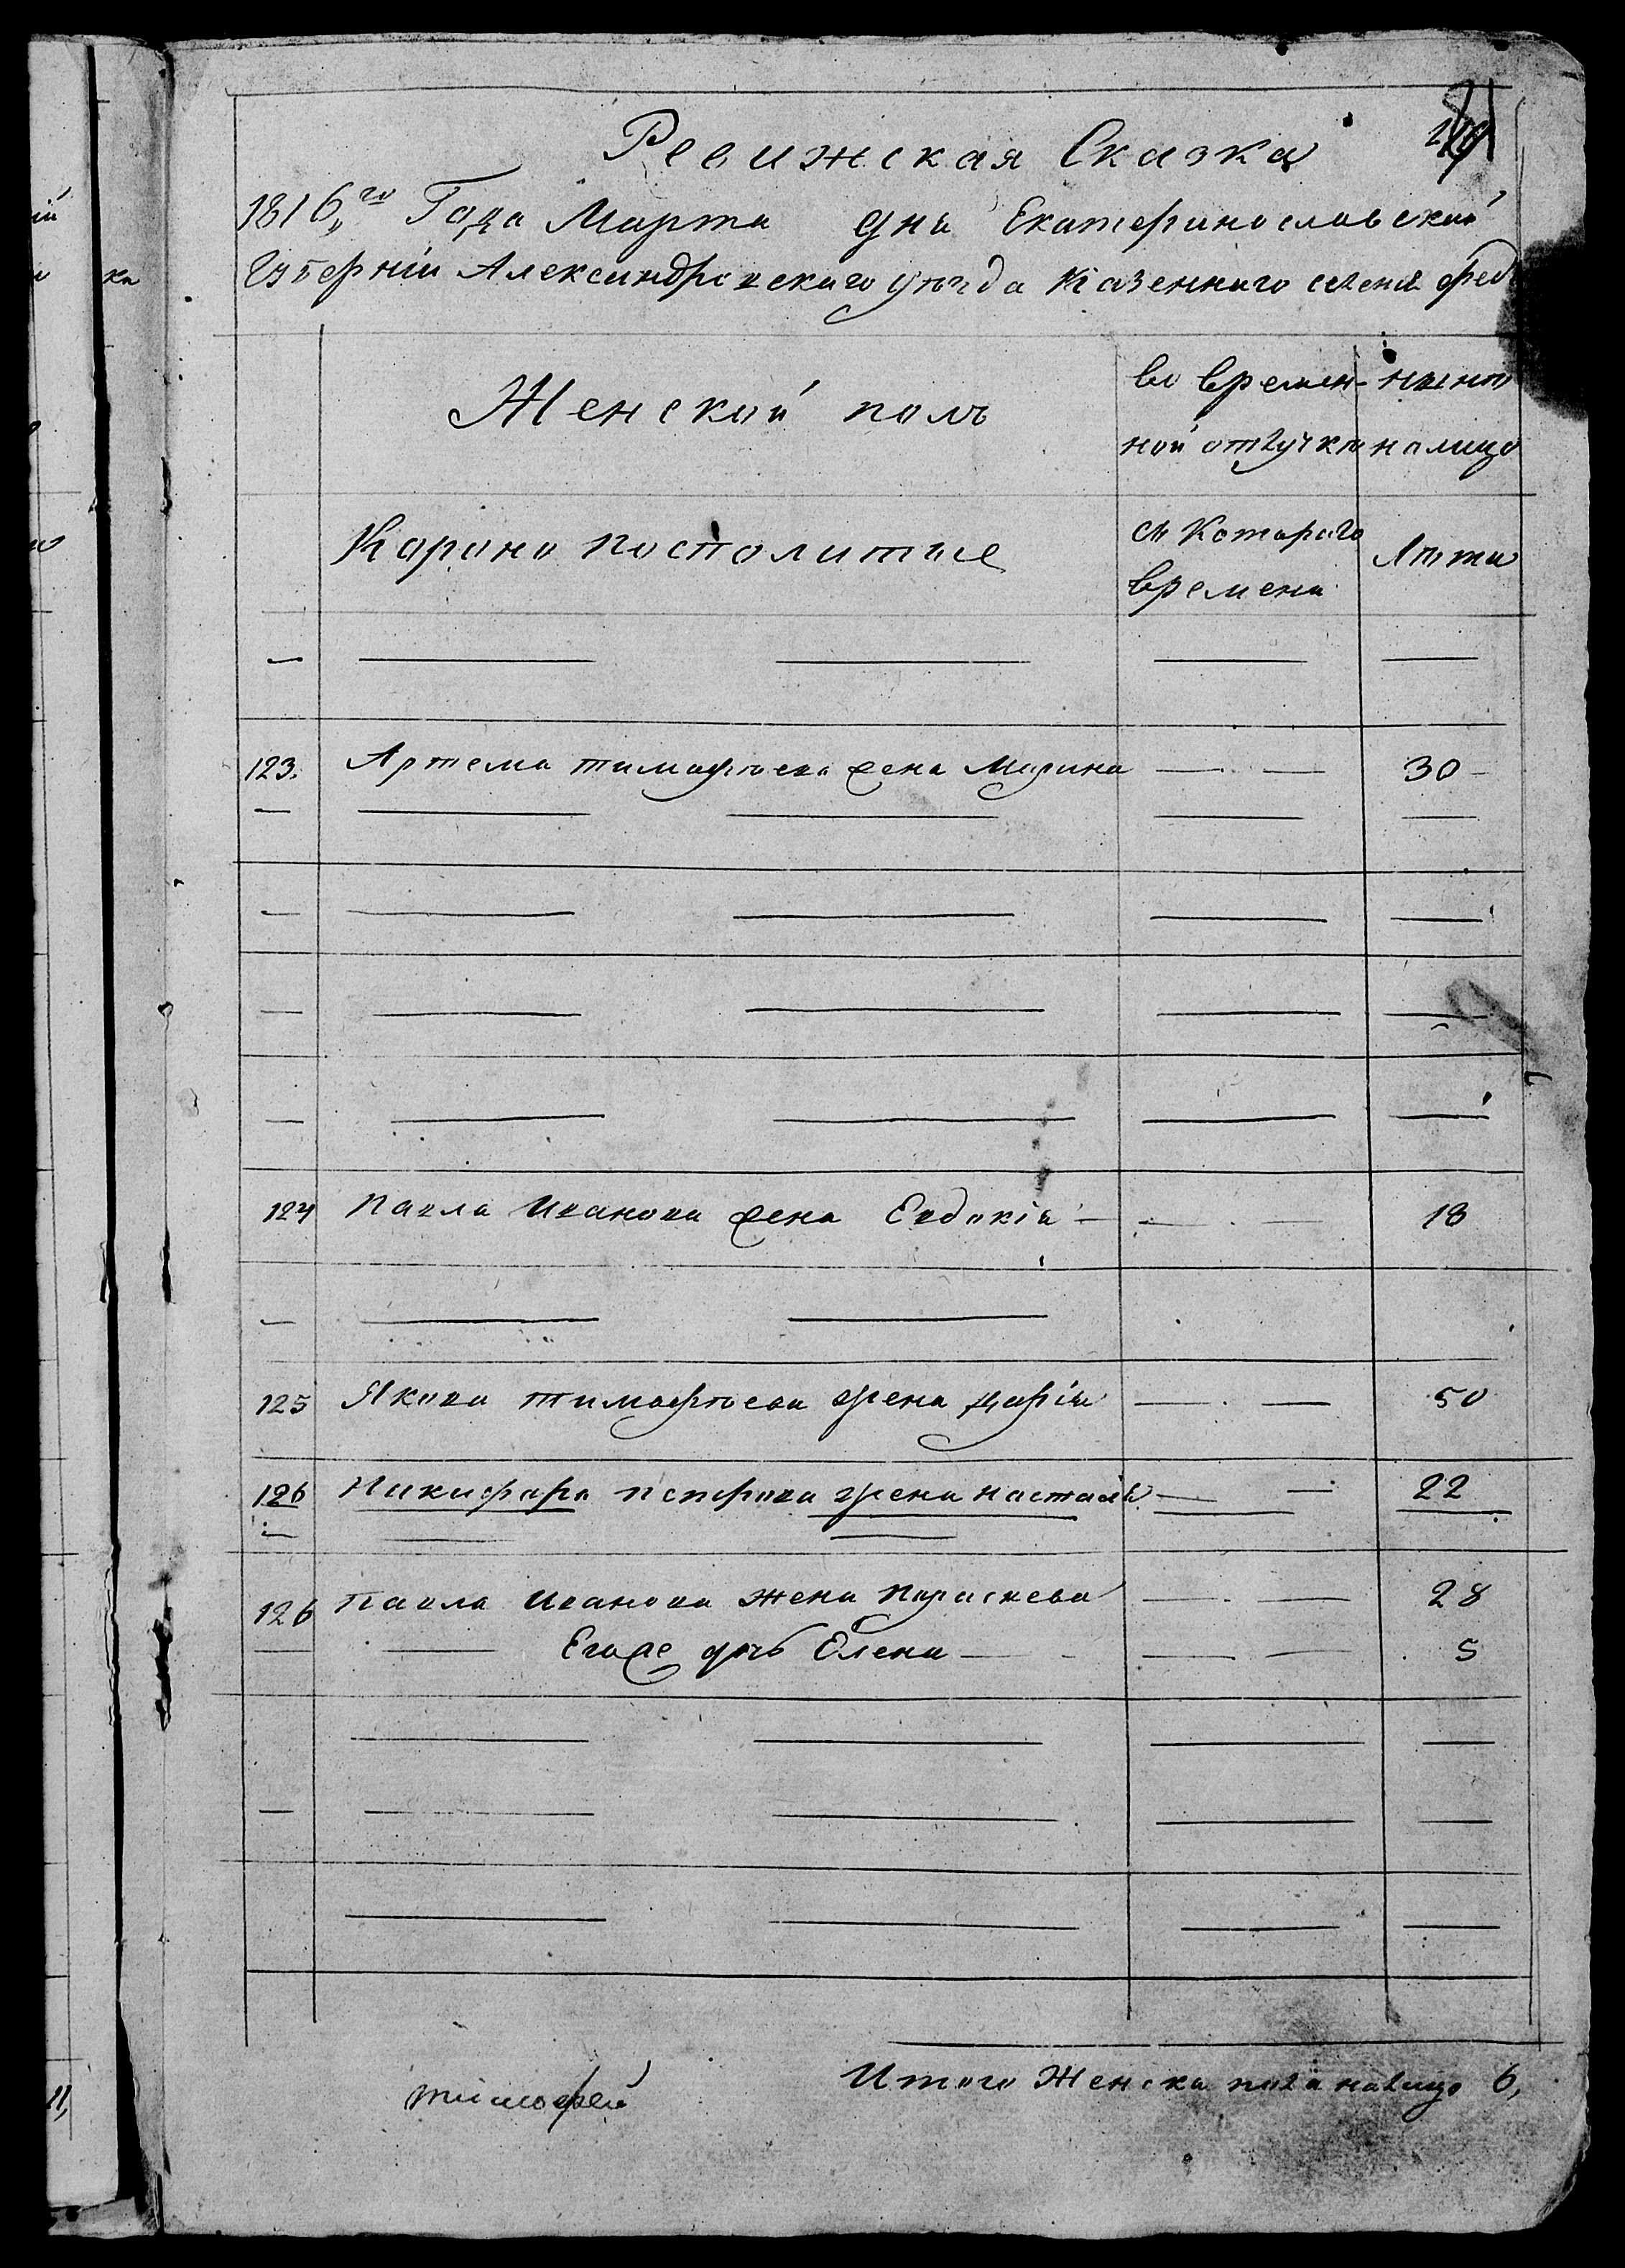 Ревижская Сказка
1816,го Года Марта дня Екатеринославской
Губернiи Александровского уѣзда Казенного селенiя Фед
Женской полъ
во времен- нынѣ
ной отлучкѣ налицо
Корони посполитые
съ Котораго
времени
Лѣта
123. Артема тимофѣева жена Марина 30
124 Павла Иванова жена Евдокiя 18
125 Якова тимофѣева жена дарiя 50
126 Никифора петрова жена настасiя 22
126 Павла Иванова жена Параскева 28
Егоже дчь Елена 5
Итого Женска пола налицо 6,
тимофей